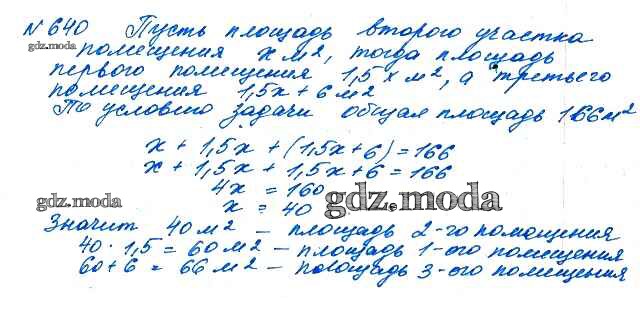 № 640 Пусть площадь второго участка
gdz.moda
помещения x м², тогда площадь
первого помещения 1,5x м², а третьего
помещения 1,5x + 6 м²
По условию задачи общая площадь 166 м²
x + 1,5x + (1,5x + 6) = 166
x + 1,5x + 1,5x + 6 = 166
4x = 160
gdz.moda
x = 40
gdz.moda
Значит 40 м² – площадь 2-го помещения
40 · 1,5 = 60 м² – площадь 1-ого помещения
60 + 6 = 66 м² – площадь 3-ого помещения